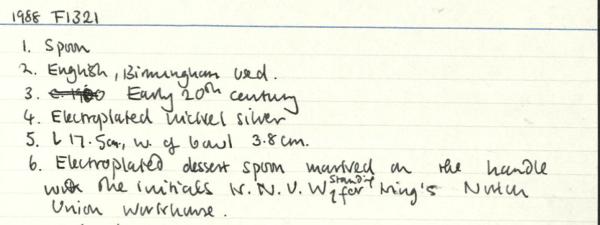 1988 F1321
1. Spoon
2. English, Birmingham ved.
3. c. 1900 Early 20th century
4. Electroplated nickel silver
5. L 17.5cm, w. of bowl 3.8cm.
6. Electroplated dessert spoon marked on the handle
with the initials N.N.U.W standing for King's Norton
Union Workhouse.